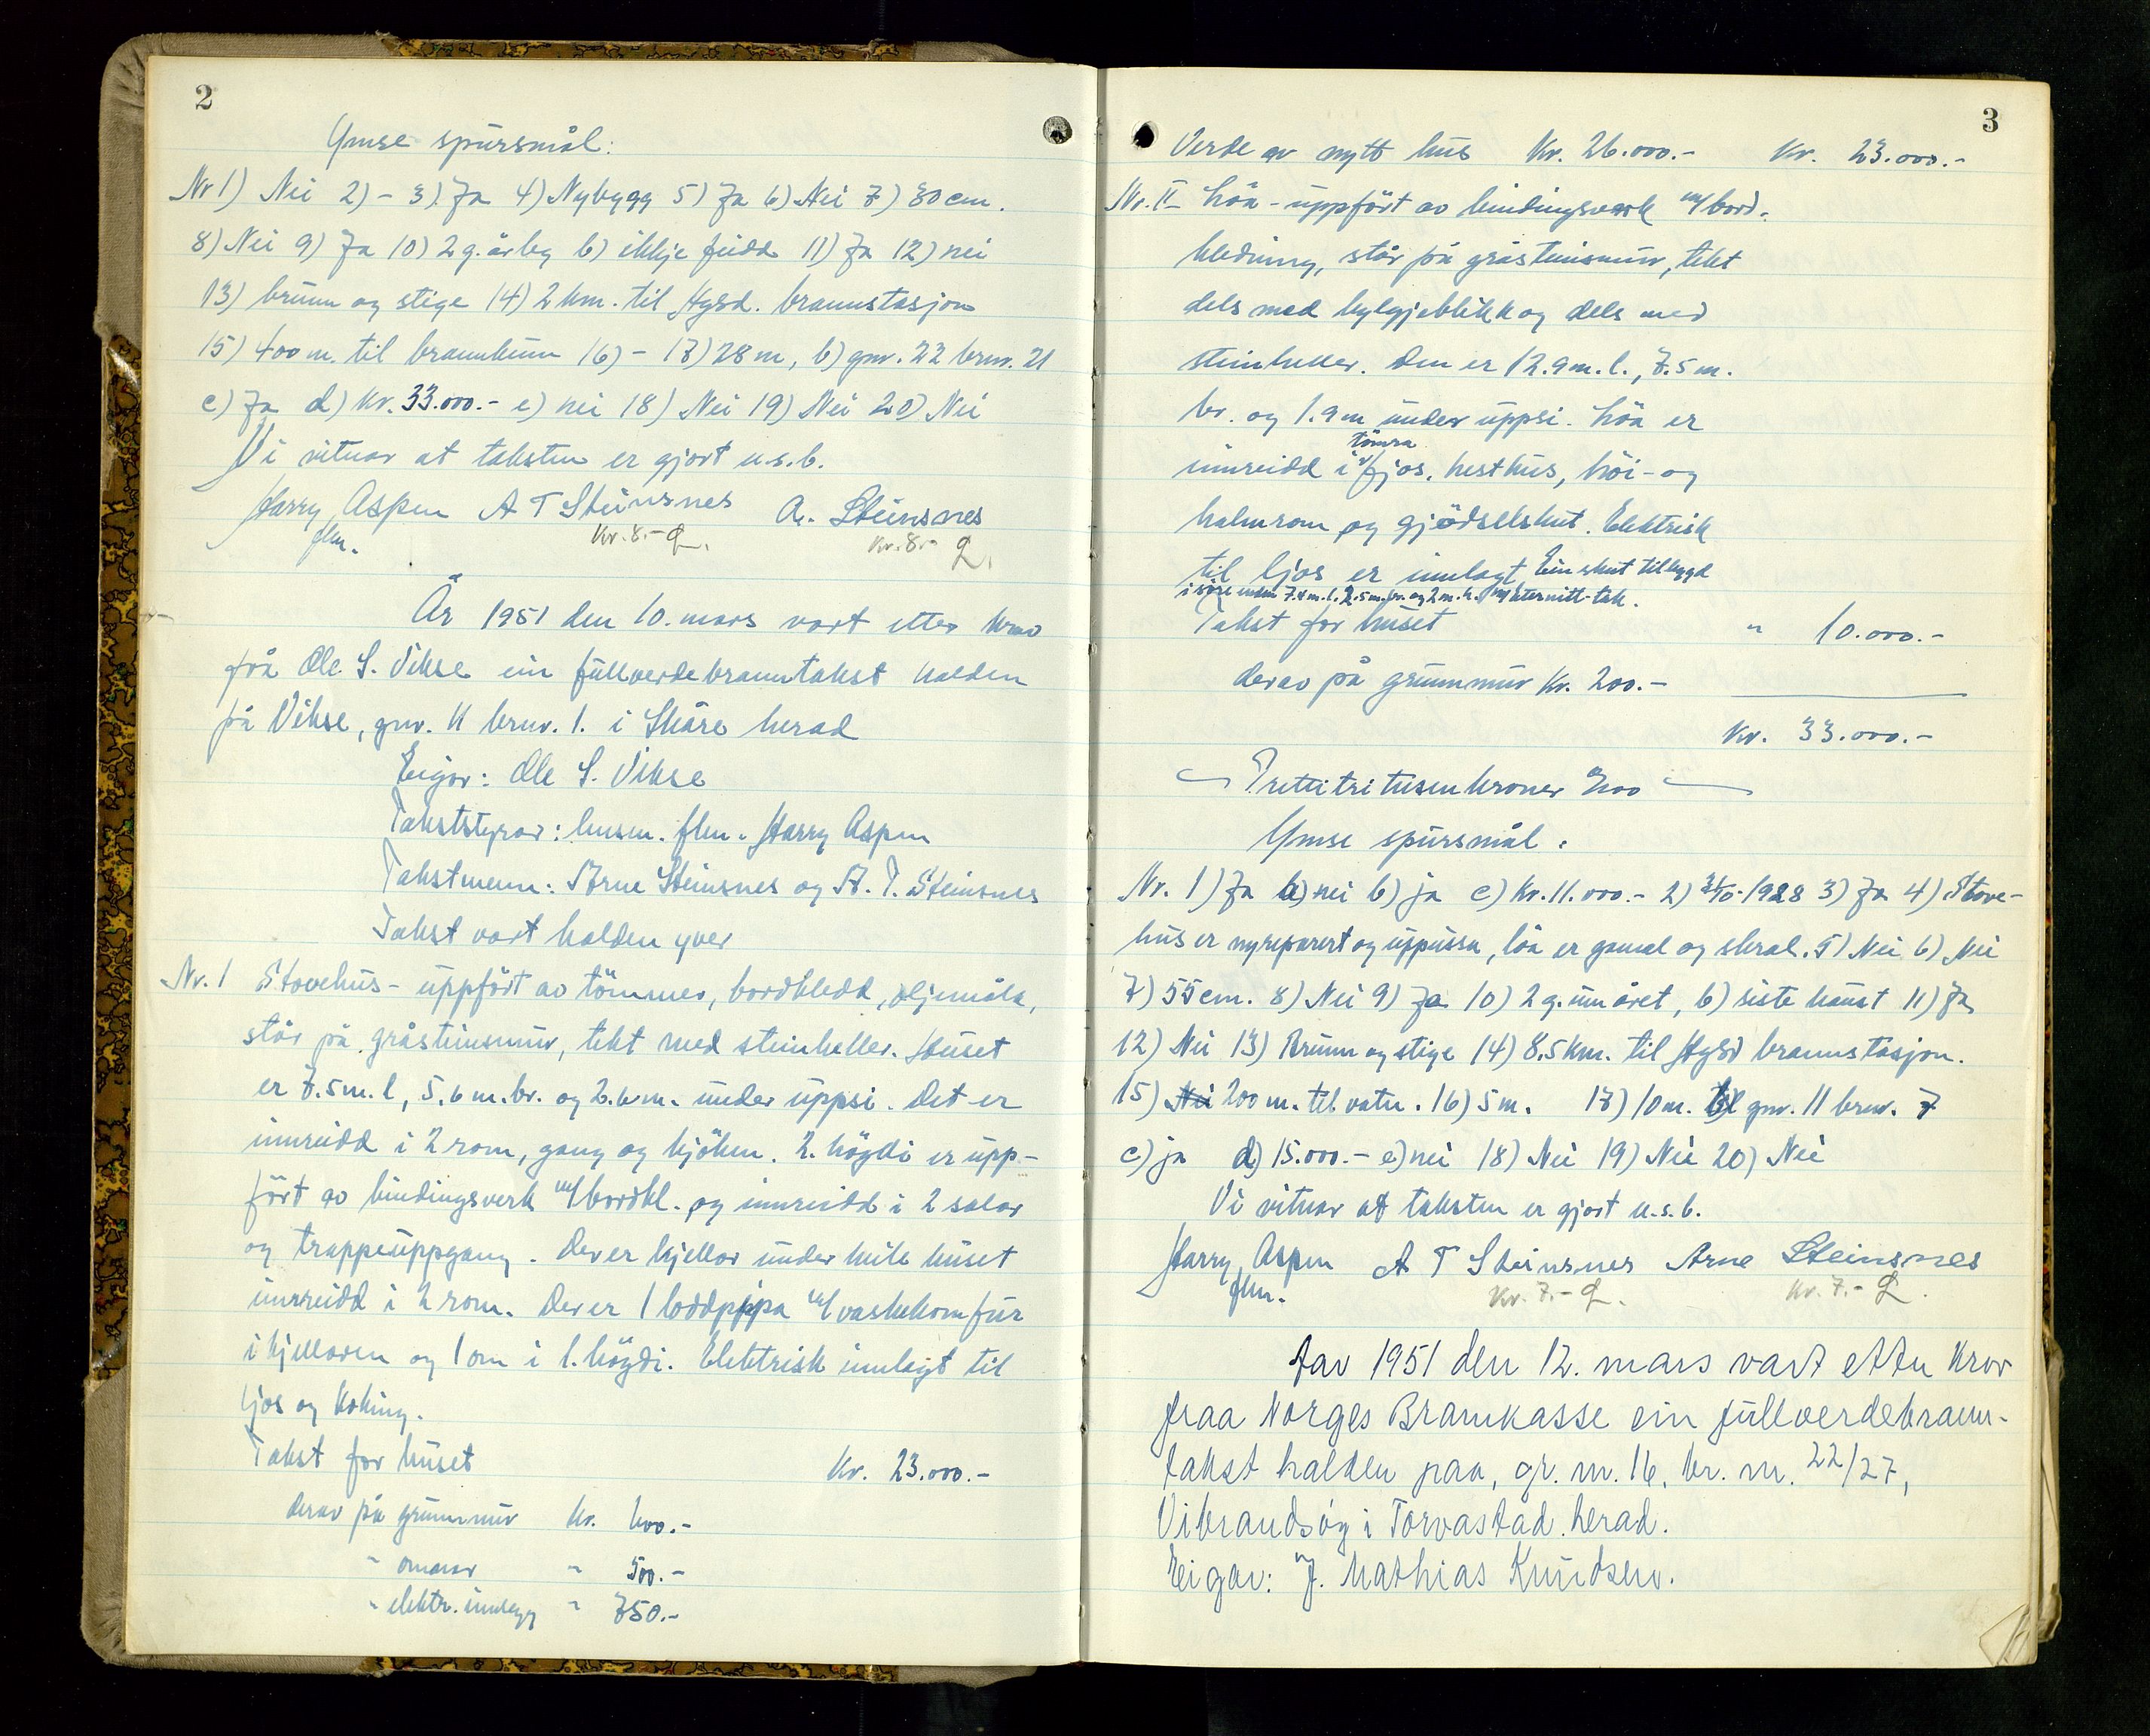 2
Ymse spursmål:
Nr 1) Nei 2) - 3) Ja 4) Nybygg 5) Ja 6) Nei 7) 30 cm.
8) Nei 9) Ja 10) 2 g. årleg b) ikkje feidd 11) Ja 12) nei
13) brunn og stige 14) 2 km. til Hgsd. brannstasjon
15) 400 m. til brannkum 16) - 17) 28 m, b) gnr. 22 brnr. 21
c) Ja d) Kr. 33.000.- e) nei 18) Nei 19) Nei 20) Nei
Vi vitnar at taksten er gjort u.s.b.
Harry Aspen A T Steinsnes A. Steinsnes
flm. Kr. 8.- Q. Kr. 8.- Q.
År 1951 den 10. mars vart etter krav
frå Ole S. Vikse ein fullverdebranntakst halden
på Vikse, gnr. 11 brnr. 1. i Skåre herad
Eigar: Ole S. Vikse
Takststyrar: lensm. flm. Harry Aspen
Takstmenn: Arne Steinsnes og A. T. Steinsnes
Takst vart halden yver
Nr. 1 Stovehus - uppfört av tömmer, bordkledd, oljemåla,
står på gråsteinsmur, tekt med steinheller. Huset
er 7.5 m. l, 5.6 m. br. og 2.6 m. under uppsi. Det er
innreidd i 2 rom, gang og kjöken. 2. högdi er upp-
fört av bindingsverk m/bordkl. og innreidd i 2 salar
og trappeuppgang. Der er kjellar under heile huset
innreidd i 2 rom. Der er 1 loddpipa m/vaskekomfur
i kjellaren og 1 om i 1. högdi. Elektrisk innlagt til
ljos og koking.
Takst for huset Kr. 23.000.-
derav på grunnmur kr. 600.-
" omnar " 500.-
" elektr. innlegg " 750.-
3
Verde av nytt hus Kr. 26.000.- Kr. 23.000.-
Nr. II - Löa - uppfört av bindingsverk m/bord-
kledning, står på gråsteinsmur, tekt
dels med bylgjeblikk og dels med
steinheller. Den er 12.9 m. l., 7.5 m.
br. og 1.9 m under uppsi. Löa er
tömra
innreidd i fjos, hesthus, höi- og
halmrom og gjödselskut. Elektrisk
til ljos er innlagt. Ein skut tilbygd
i söre enden 7.4 m. l. 2.5 m. br. og 2 m. h. m/eternitt-tak.
Takst for huset " 10.000.-
derav på grunnmur Kr. 200.-
Kr. 33.000.-
Trettitri tusen kroner 0/00
Ymse spursmål.
Nr. 1) Ja a) nei b) ja c) Kr. 11.000.- 2) 1928 3) Ja 4) Stove-
hus er nyreparert og uppussa, löa er gamal og skral. 5) Nei 6) Nei
7) 55 cm. 8) Nei 9) Ja 10) 2 g. um året, b) siste haust 11) Ja
12) Nei 13) Brunn og stige 14) 8.5 km. til Hgsd brannstasjon.
15) Nei 200 m. til vatn. 16) 5 m. 17) 10 m. b) gnr. 11 brnr. 7
c) ja d) 15.000.- e) nei 18) Nei 19) Nei 20) Nei
Vi vitnar at taksten er gjort u.s.b.
Harry Aspen A T Steinsnes Arne Steinsnes
flm. Kr. 7.- Q. Kr. 7.- Q.
Aar 1951 den 12. mars vart etter krav
fraa Norges Brannkasse ein fullverdebrann-
takst halden paa, gr. nr. 16, br. nr. 22/27,
Vibrandsöy i Torvastad herad.
Eigar: J. Mathias Knudsen.